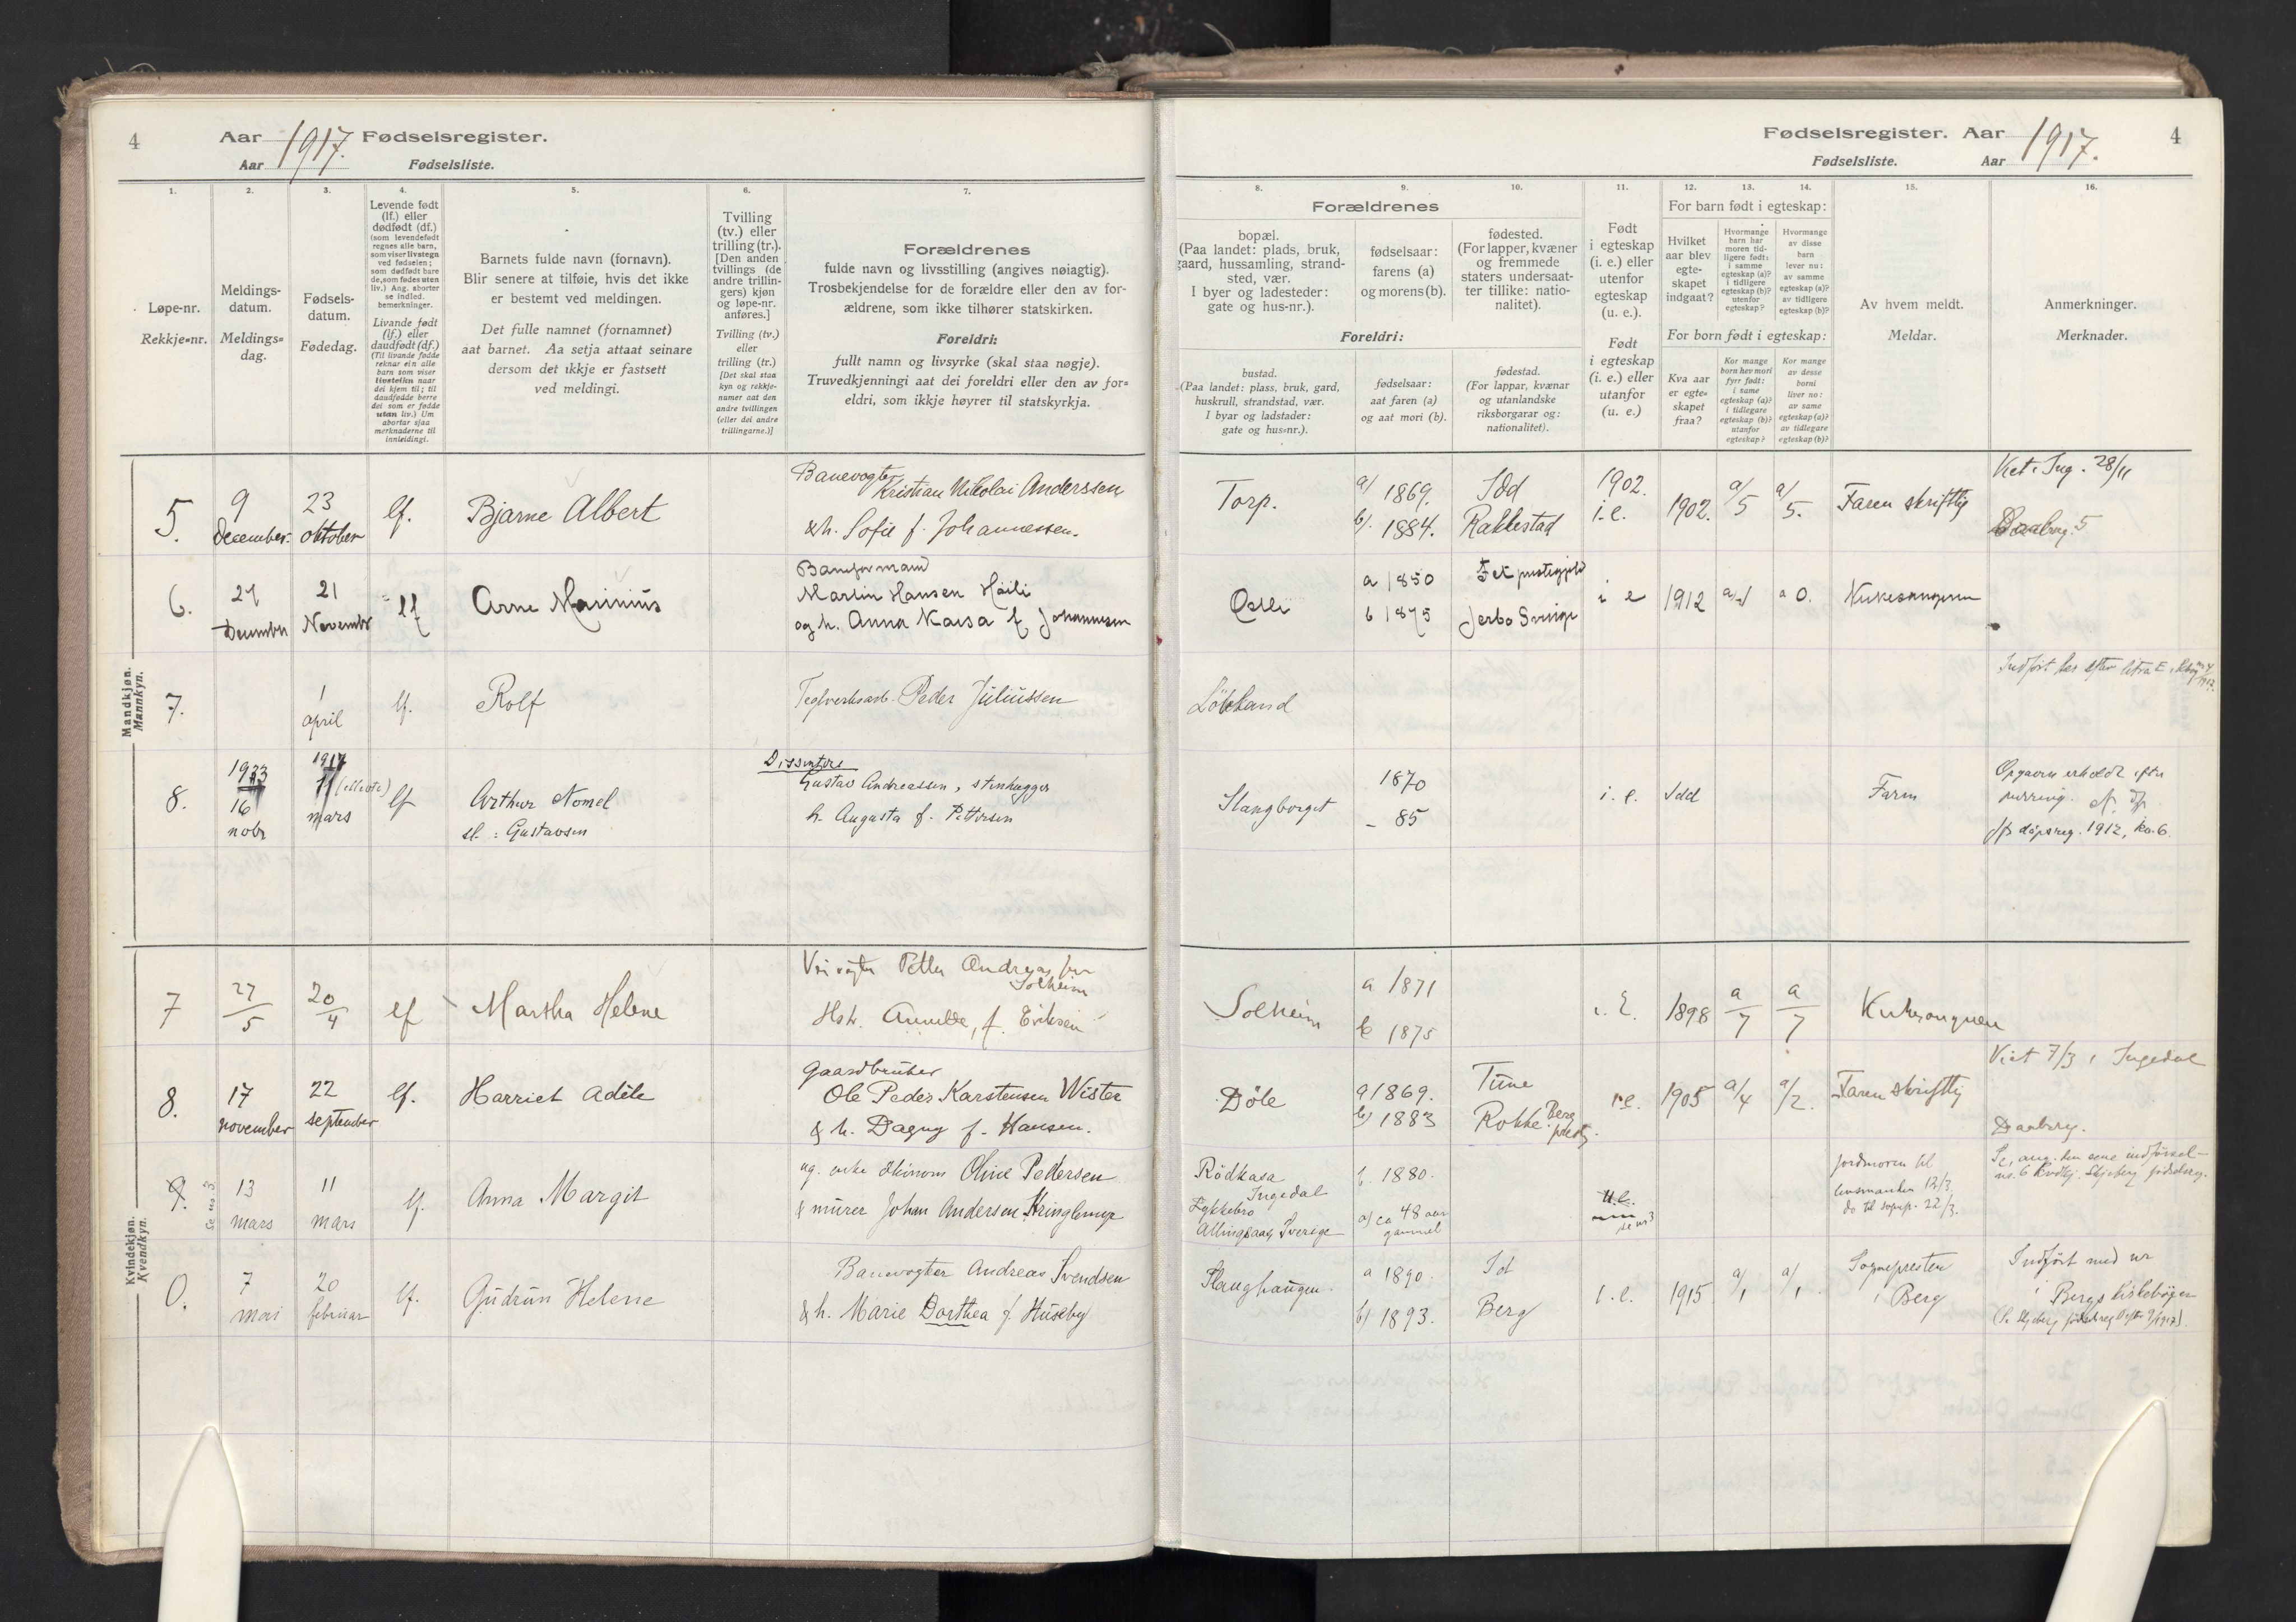 4
Aar 1917. Fødselsregister.
Aar Fødselsliste.
Fødselsregister. Aar 1917.
4
Fødselsliste. Aar
1. 2. 3. 4. 5. 6. 7.
Løpe-nr.
Rekkje-nr.
Meldings-
datum.
Meldings-
dag.
Fødsels-
datum.
Fødedag.
Levende født
(lf.) eller
dødfødt (df.)
(som levendefødt
regnes alle barn,
som viser livstegn
ved fødselen;
som dødfødt bare
de, som fødes uten
liv.) Ang. aborter
se indled.
bemerkninger.
Livande født
(lf.) eller
daudfødt (df.)
(Til livande fødde
reknar ein alle
barn som viser
livsteikn naar
dei kjem til; til
daudfødde berre
dei som er fødde
utan liv.) Um
abortar sjaa
merknaderne til
innleidingi.
Barnets fulde navn (fornavn).
Blir senere at tilføie, hvis det ikke
er bestemt ved meldingen.
Det fulle namnet (fornamnet)
aat barnet. Aa setja attaat seinare
dersom det ikkje er fastsett
ved meldingi.
Tvilling
(tv.) eller
trilling (tr.).
[Den anden
tvillings (de
andre trillin-
gers) kjøn
og løpe-nr.
anføres.]
Tvilling (tv.)
eller
trilling (tr.)
[Det skal staa
kyn og rekkje-
numer aat den
andre tvillingen
(eller dei andre
trillingarne.)]
Forældrenes
fulde navn og livsstilling (angives nøiagtig).
Trosbekjendelse for de forældre eller den av for-
ældrene, som ikke tilhører statskirken.
Foreldri:
fullt namn og livsyrke (skal staa nøgje).
Truvedkjenningi aat dei foreldri eller den av for-
eldri, som ikkje høyrer til statskyrkja.
8. 9. 10. 11. 12. 13. 14. 15. 16.
Forældrenes
bopæl.
(Paa landet: plads, bruk,
gaard, hussamling, strand-
sted, vær.
I byer og ladesteder:
gate og hus-nr.).
fødselsaar:
farens (a)
og morens (b).
fødested.
(For lapper, kvæner
og fremmede
staters undersaat-
ter tillike: natio-
nalitet).
Foreldri:
bustad.
(Paa landet: plass, bruk, gard,
huskrull, strandstad, vær.
I byar og ladstader:
gate og hus-nr.).
fødselsaar:
aat faren (a)
og aat mori (b).
fødestad.
(For lappar, kvænar
og utanlandske
riksborgarar og:
nationalitet).
Født
i egteskap
(i. e.) eller
utenfor
egteskap
(u. e.).
Født
i egteskap
(i. e.) eller
utanfor
(u. e.)
For barn født i egteskap:
Hvilket
aar blev
egte-
skapet
indgaat?
Hvormange
barn har
moren tid-
ligere født:
i samme
egteskap (a)?
i tidligere
egteskap (b)?
utenfor
egteskap?
Hvormange
av disse
barn
lever nu:
av samme
egteskap (a)?
av tidligere
egteskap (b)?
For born født i egteskap:
Kva aar
er egte-
skapet
fraa?
Kor mange
born hev mori
fyrr født:
i same
egteskap (a)?
i tidlegare
egteskap (b)?
utanfor
egteskap?
Kor mange
av desse
borni
liver no:
av same
egteskap (a)?
av tidlegare
egteskap (b)?
Av hvem meldt.
Meldar.
Anmerkninger.
Merknader.
Mandkjøn.
Mannkyn.
5. 9 December. 23 oktober lf. Bjarne Albert
Banevogter Kristian Nikolai Anderssen
& h. Sofie f. Johannessen.
Torp. a/ 1869. b/. 1884. Idd Rakkestad 1902. i.e. 1902. a/5 a/5. Faren skriftlig
28/11
6. 21 November lf Arne Marinius
Martin Hansen
og h. Anna Kaisa f Johannesen
a 1850 b 1875 i e 1912 a 0.
7. 1 april lf. Rolf
Peder Juliussen
8. 1933 16 nobr 1917 11 mars lf Arthur Nomel
sl.: Gustavsen
Dissentere
Gustav Andreassen, stenhugger
h. Augusta f. Pettersen
Stangberget 1870 - 85 i. e. Idd Faren
døpsreg. 1912, no. 6.
Kvindekjøn.
Kvendkyn.
7 27/5 20/4 lf Martha Helene
Petter Andreas
Solheim
f. Eriksen
Solheim a 1871 b 1875 i. E. 1898 a/7 a/7
8. 17 november 22 september lf. Harriet Adèle
Gaardbruker
Ole Peder Karstensen Wister
& h. Dagny f. Hansen.
Döle a 1869. b) 1883 Tune Rokke Berg prestg. i e. 1905 a/4 a/2. Faren skriftlig
Viet 7/3 i Ingedal
9. Se nr 3 13 mars 11 mars lf. Anna Margit
Oline Pedersen
& murer Johan Andersen
Rödkasa
Ingedal
Sverige
b. 1880.
a) ca 48 aar
gammel
u.e.
se nr 3
Jordmoren til
lensmanden 12/3
22/3.
0. 7 mai 20 februar lf. Gudrun Helene
Banevogter Andreas Svendsen
& h. Marie Dorthea f. Huseby
a 1890. b) 1893. Id Berg i. e. 1915 a/1 a/1. Sognepresten
i Berg
Indført med nr
i Bergs kirkebøger